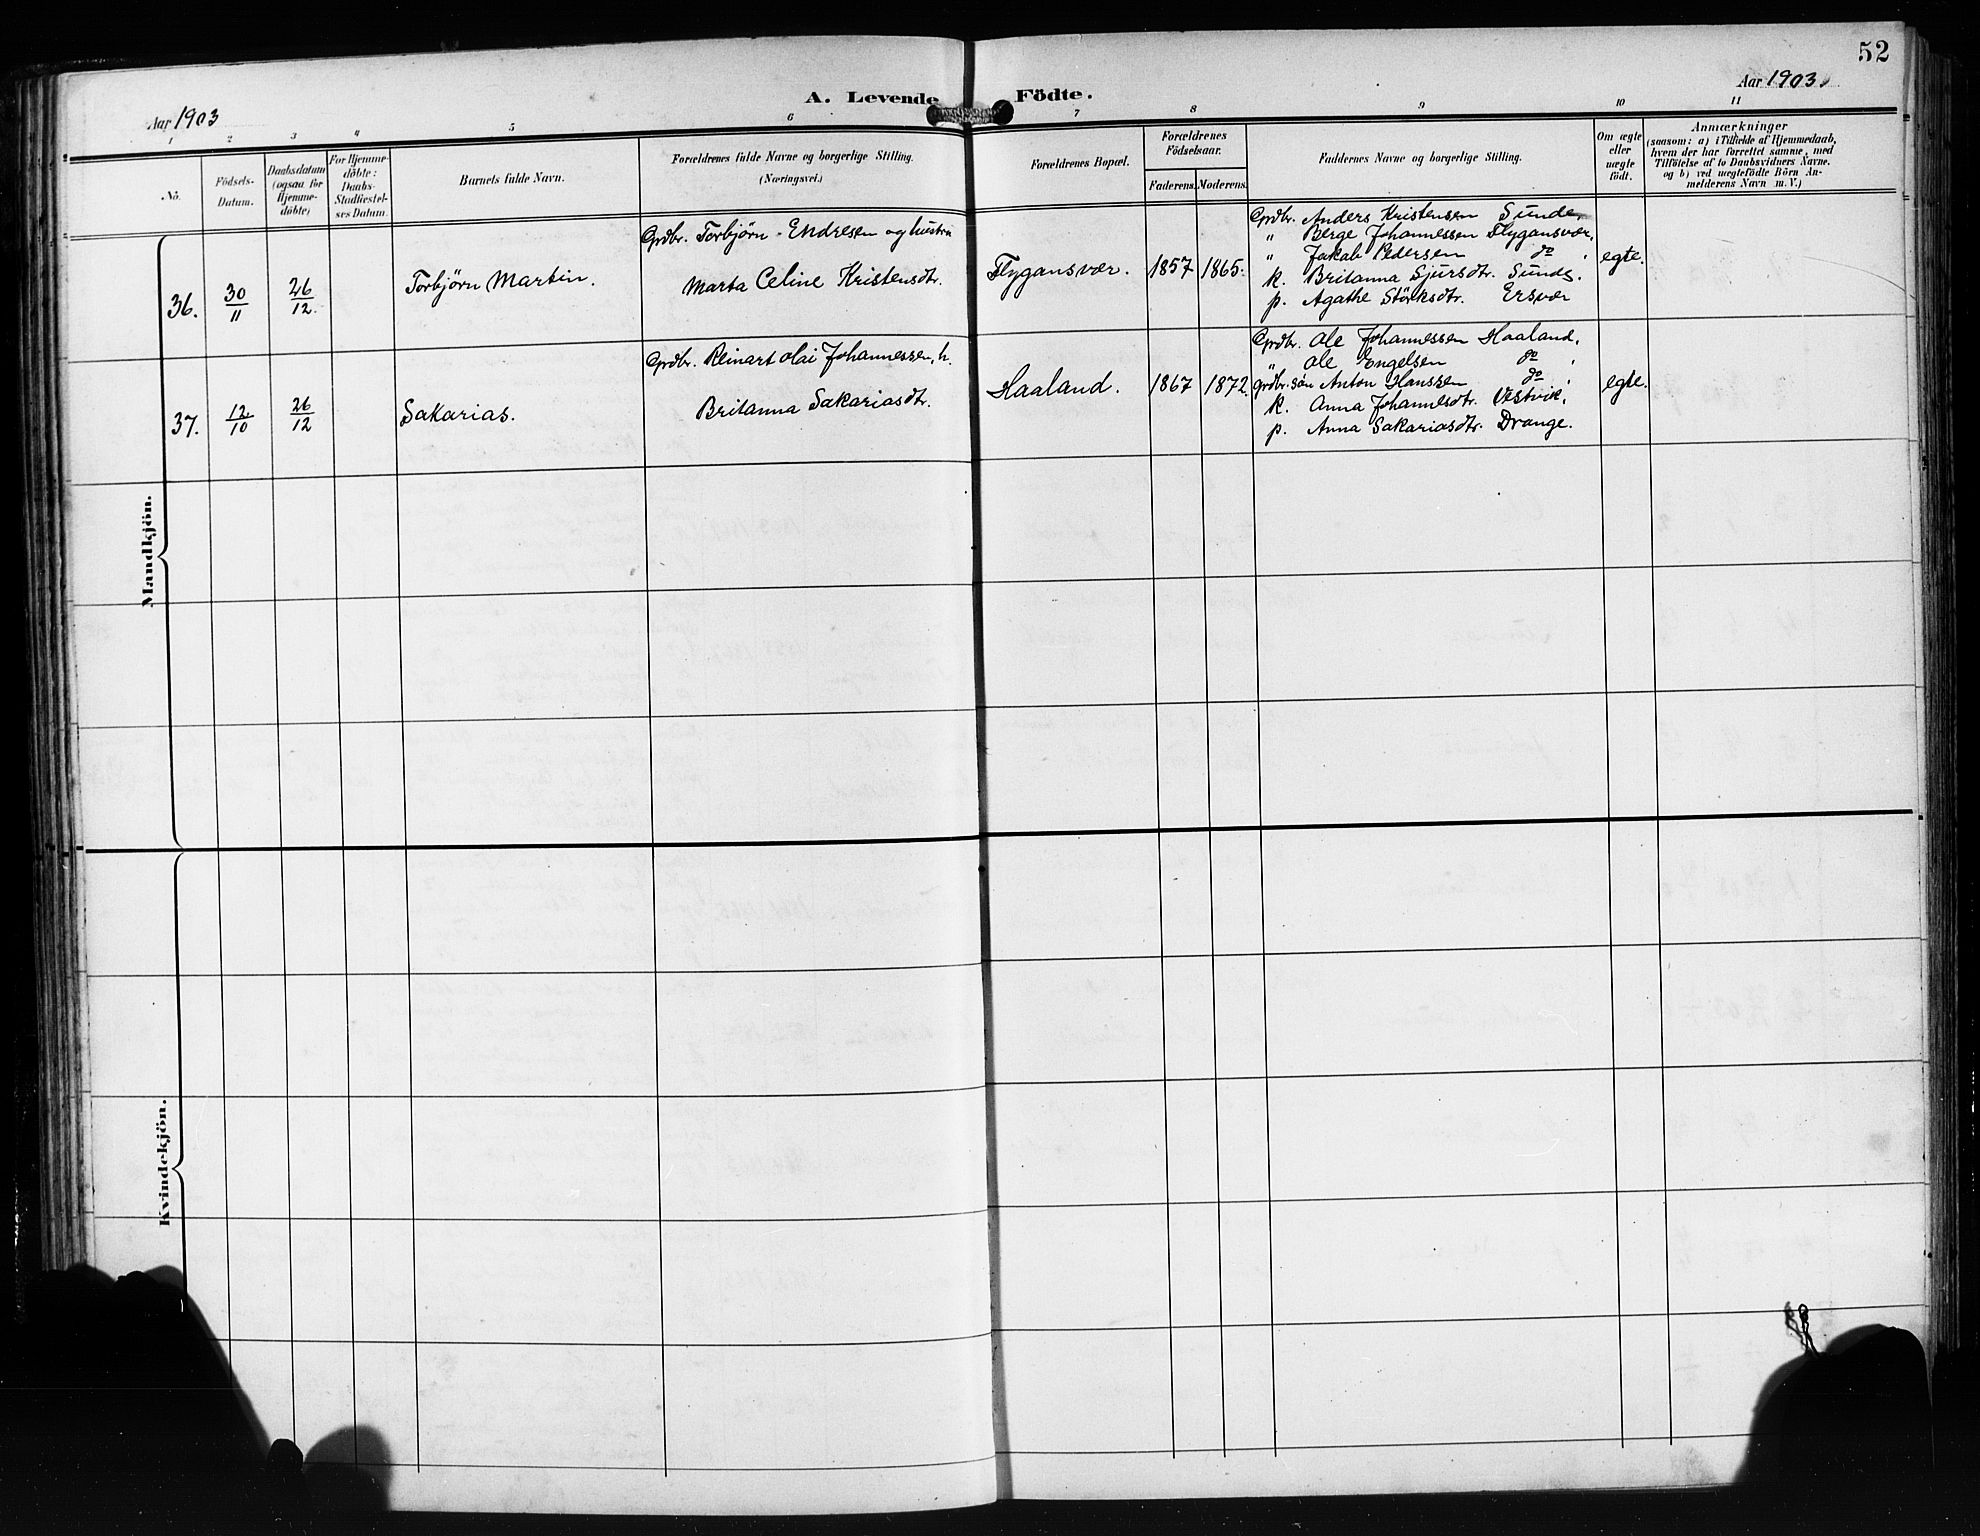 52
A. Levende Födte.
Aar 1903
Aar 1903.
1 2 3 4 5 6 7 8 9 10 11
No.
Födsels-
Datum.
Daabsdatum
(ogsaa for
Hjemme-
döbte)
For Hjemme-
döbte:
Daabs-
Stadfæstel-
ses Datum.
Barnets fulde Navn.
Forældrenes fulde Navne og borgerlige Stilling.
(Næringsvei.)
Forældrenes Bopæl.
Forældrenes
Födselsaar.
Faderens. Moderens.
Faddernes Navne og borgerlige Stilling.
Om ægte
eller
uægte
födt.
Anmærkninger
(saasom: a) i Tilfælde af Hjemmedaab,
hvem der har forrettet samme, med
Tilföielse af to Daabsvidners Navne.
og b) ved uægtefödte Börn An-
melderens Navn m. V.)
Mandkjön.
36.
30/11
26/12.
Torbjørn Martin.
Grdbr. Torbjørn Endresen og hustru
Marta Celine Kristensdtr.
Flygansvær.
1857
1865.
Grdbr. Anders Kristensen Sunde,
" Berge Johannessen Flygansvær,
" Jakob Pedersen do,
k. Britanna Sjursdtr. Sunde.
p. Agathe Störksdtr. Ersvær
egte.
37.
12/10
26/12
Sakarias.
Grdbr. Reinart Olai Johannessen, h.
Britanna Sakariasdtr.
Haaland.
1867
1872.
Grdbr. Ole Johannessen Haaland,
" Ole Engelsen do,
grdbr. søn Anton Hanssen do,
k. Anna Johannesdtr. Vestvik,
p. Anna Sakariasdtr. Drange.
egte.
Kvindekjön.